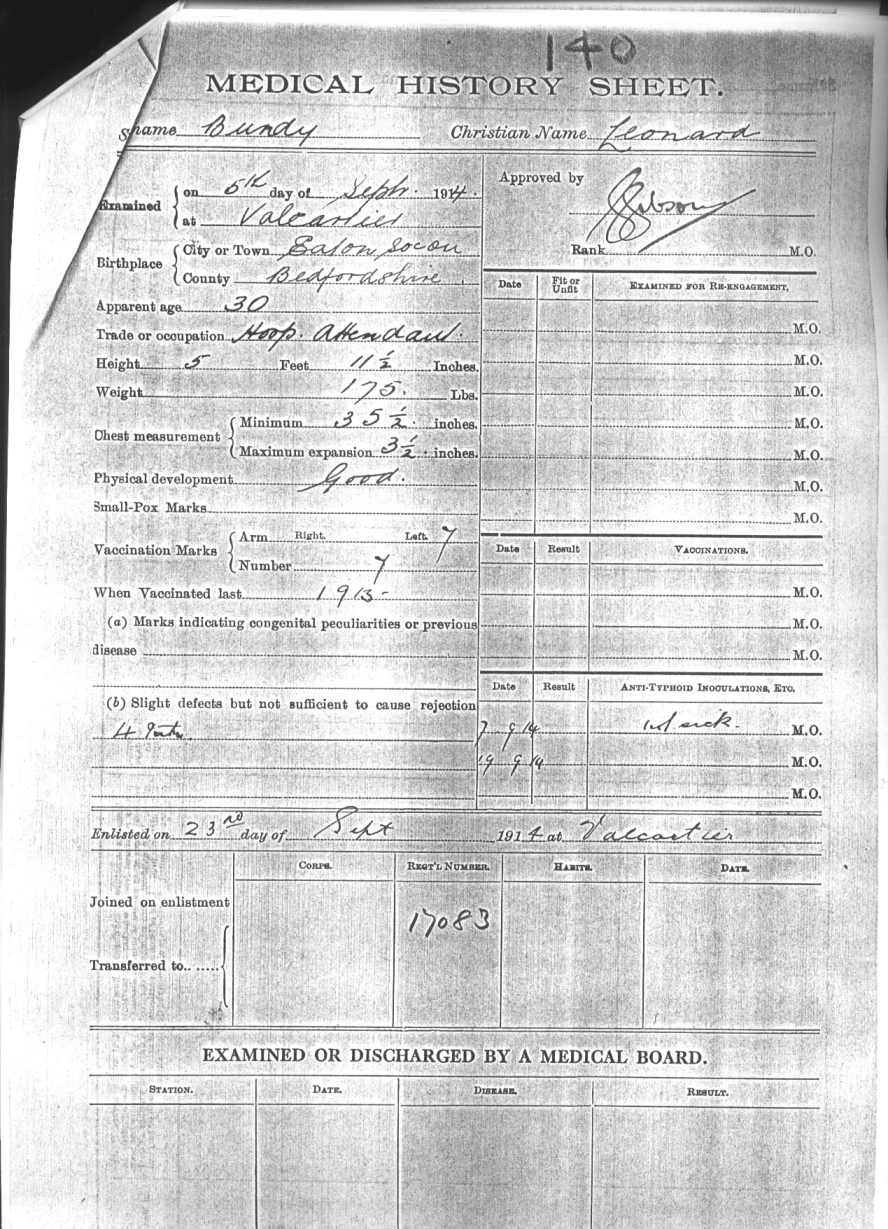 140
MEDICAL HISTORY SHEET.
name Bundy Christian Name Leonard
Examined on 5th day of Sept. 1914.
at Valcartier
Approved by
Rank M.O.
Birthplace City or Town Eaton Socon
County Bedfordshire
Apparent age 30
Trade or occupation Hosp. Attendant.
Height 5 Feet 11 1/2 Inches.
Weight 175. Lbs.
Chest measurement Minimum 35 1/2 inches.
Maximum expansion 3 1/2 inches.
Physical development Good.
Small-Pox Marks
Vaccination Marks Arm Right. Left.
Number
When Vaccinated last 1913
(a) Marks indicating congenital peculiarities or previous
disease
(b) Slight defects but not sufficient to cause rejection
4
Date Fit or Unfit EXAMINED FOR RE-ENGAGEMENT.
M.O.
M.O.
M.O.
M.O.
M.O.
M.O.
M.O.
Date Result VACCINATIONS.
M.O.
M.O.
M.O.
Date Result ANTI-TYPHOID INOCULATIONS, ETC.
7 9 14 M.O.
19 9 14 M.O.
M.O.
Enlisted on 23rd day of Sept 1914 at Valcartier
CORPS. REGT'L NUMBER. HABITS. DATE.
Joined on enlistment 17083
Transferred to.. .....
EXAMINED OR DISCHARGED BY A MEDICAL BOARD.
STATION. DATE. DISEASE. RESULT.